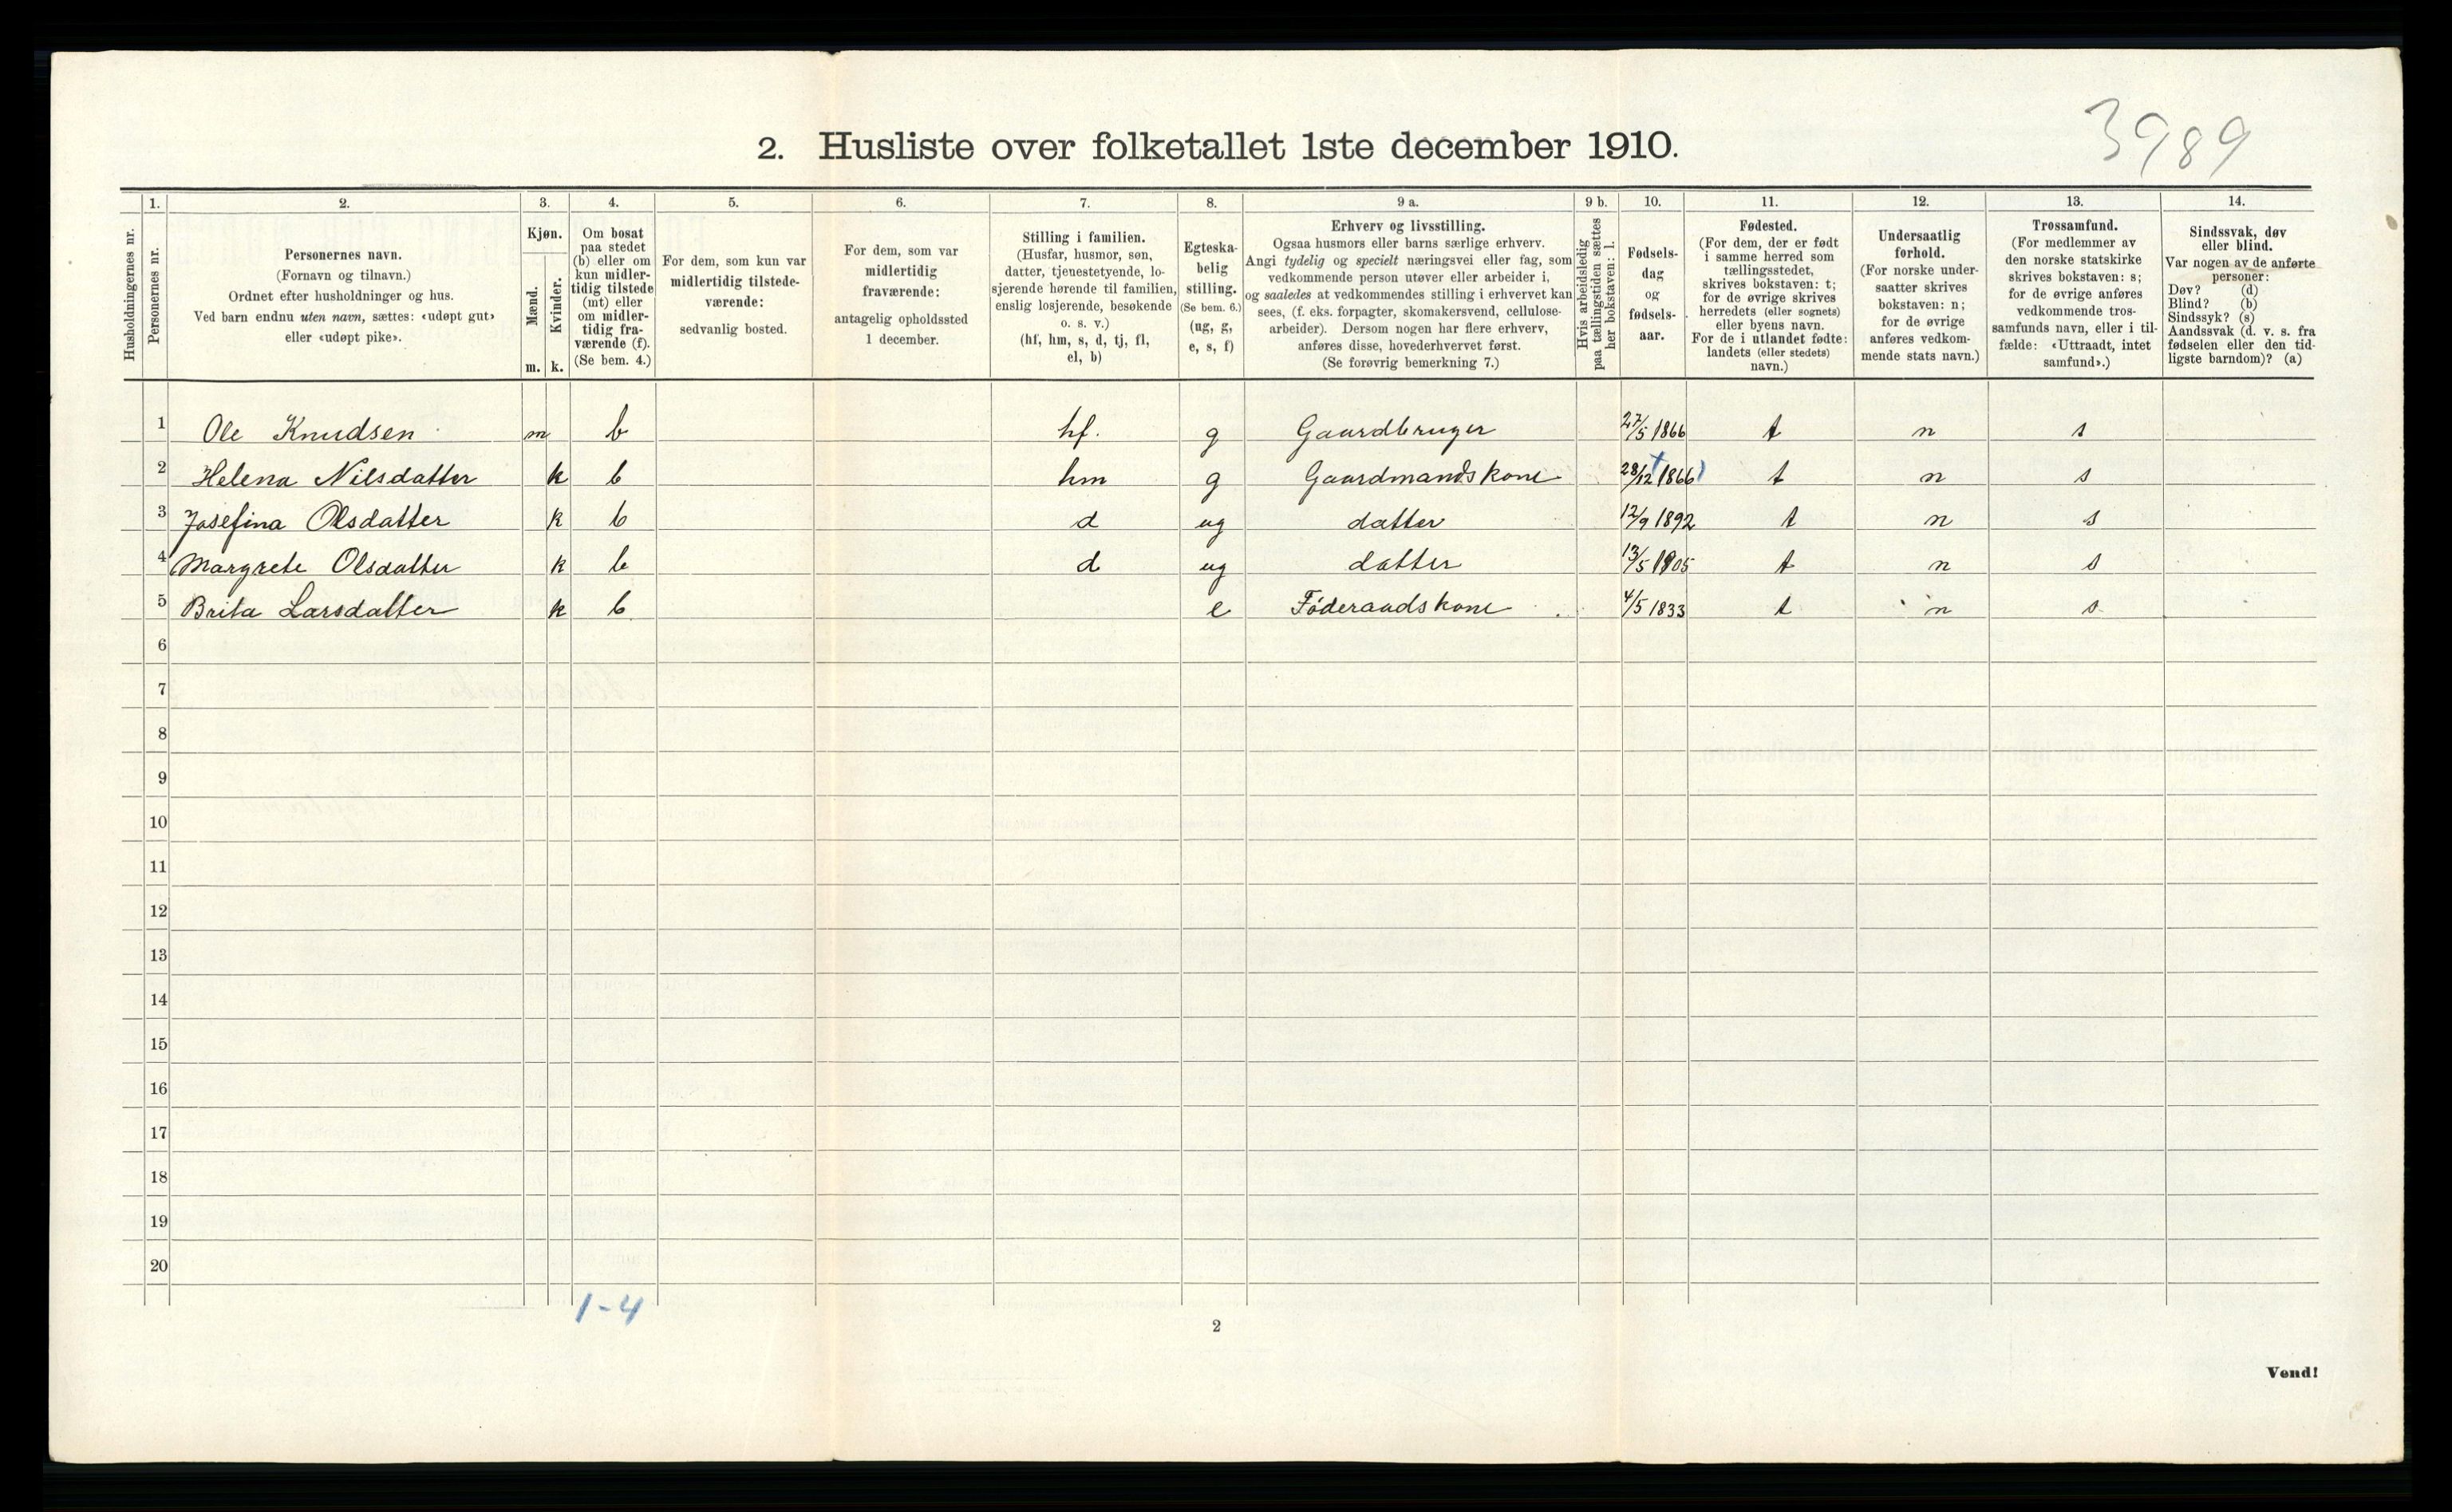 3989
2. Husliste over folketallet 1ste december 1910.
Husholdningernes nr.
1.
Personernes nr.
2.
Personernes navn.
(Fornavn og tilnavn.)
Ordnet efter husholdninger og hus.
Ved barn endnu uten navn, sættes: «udøpt gut»
eller «udøpt pike».
3.
Kjøn.
Mænd.
Kvinder.
m. k.
4.
Om bosat
paa stedet
(b) eller om
kun midler-
tidig tilstede
(mt) eller
om midler-
tidig fra-
værende (f).
(Se bem. 4.)
5.
For dem, som kun var
midlertidig tilstede-
værende:
sedvanlig bosted.
6.
For dem, som var
midlertidig
fraværende:
antagelig opholdssted
1 december.
7.
Stilling i familien.
(Husfar, husmor, søn,
datter, tjenestetyende, lo-
sjerende hørende til familien,
enslig losjerende, besøkende
o. s. v.)
(hf, hm, s, d, tj, fl,
el, b)
8.
Egteska-
belig
stilling.
(Se bem. 6.)
(ug, g,
e, s, f)
9 a.
Erhverv og livsstilling.
Ogsaa husmors eller barns særlige erhverv.
Angi tydelig og specielt næringsvei eller fag, som
vedkommende person utøver eller arbeider i,
og saaledes at vedkommendes stilling i erhvervet kan
sees, (f. eks. forpagter, skomakersvend, cellulose-
arbeider). Dersom nogen har flere erhverv,
anføres disse, hovederhvervet først.
(Se forøvrig bemerkning 7.)
9 b.
Hvis arbeidsledig
paa tællingstiden sættes
her bokstaven: l.
10.
Fødsels-
dag
og
fødsels-
aar.
11.
Fødested.
(For dem, der er født
i samme herred som
tællingsstedet,
skrives bokstaven: t;
for de øvrige skrives
herredets (eller sognets)
eller byens navn.
For de i utlandet fødte:
landets (eller stedets)
navn.)
12.
Undersaatlig
forhold.
(For norske under-
saatter skrives
bokstaven: n;
for de øvrige
anføres vedkom-
mende stats navn.)
13.
Trossamfund.
(For medlemmer av
den norske statskirke
skrives bokstaven: s;
for de øvrige anføres
vedkommende tros-
samfunds navn, eller i til-
fælde: «Uttraadt, intet
samfund».)
14.
Sindssvak, døv
eller blind.
Var nogen av de anførte
personer:
Døv? (d)
Blind? (b)
Sindssyk? (s)
Aandssvak (d. v. s. fra
fødselen eller den tid-
ligste barndom)? (a)
1 Ole Knudsen m b hf. g Gaardbruger 27/5 1866 t n s
2 Helena Nilsdatter k b hm g Gaardmandskone 28/12 1866 t n s
3 Josefina Olsdatter k b d ug datter 12/9 1892 t n s
4 Margrete Olsdatter k b d ug datter 13/5 1905 t n s
5 Brita Larsdatter k b e Føderaadskone 4/5 1833 t n s
6
7
8
9
10
11
12
13
14
15
16
17
18
19
20
1-4
2
Vend!